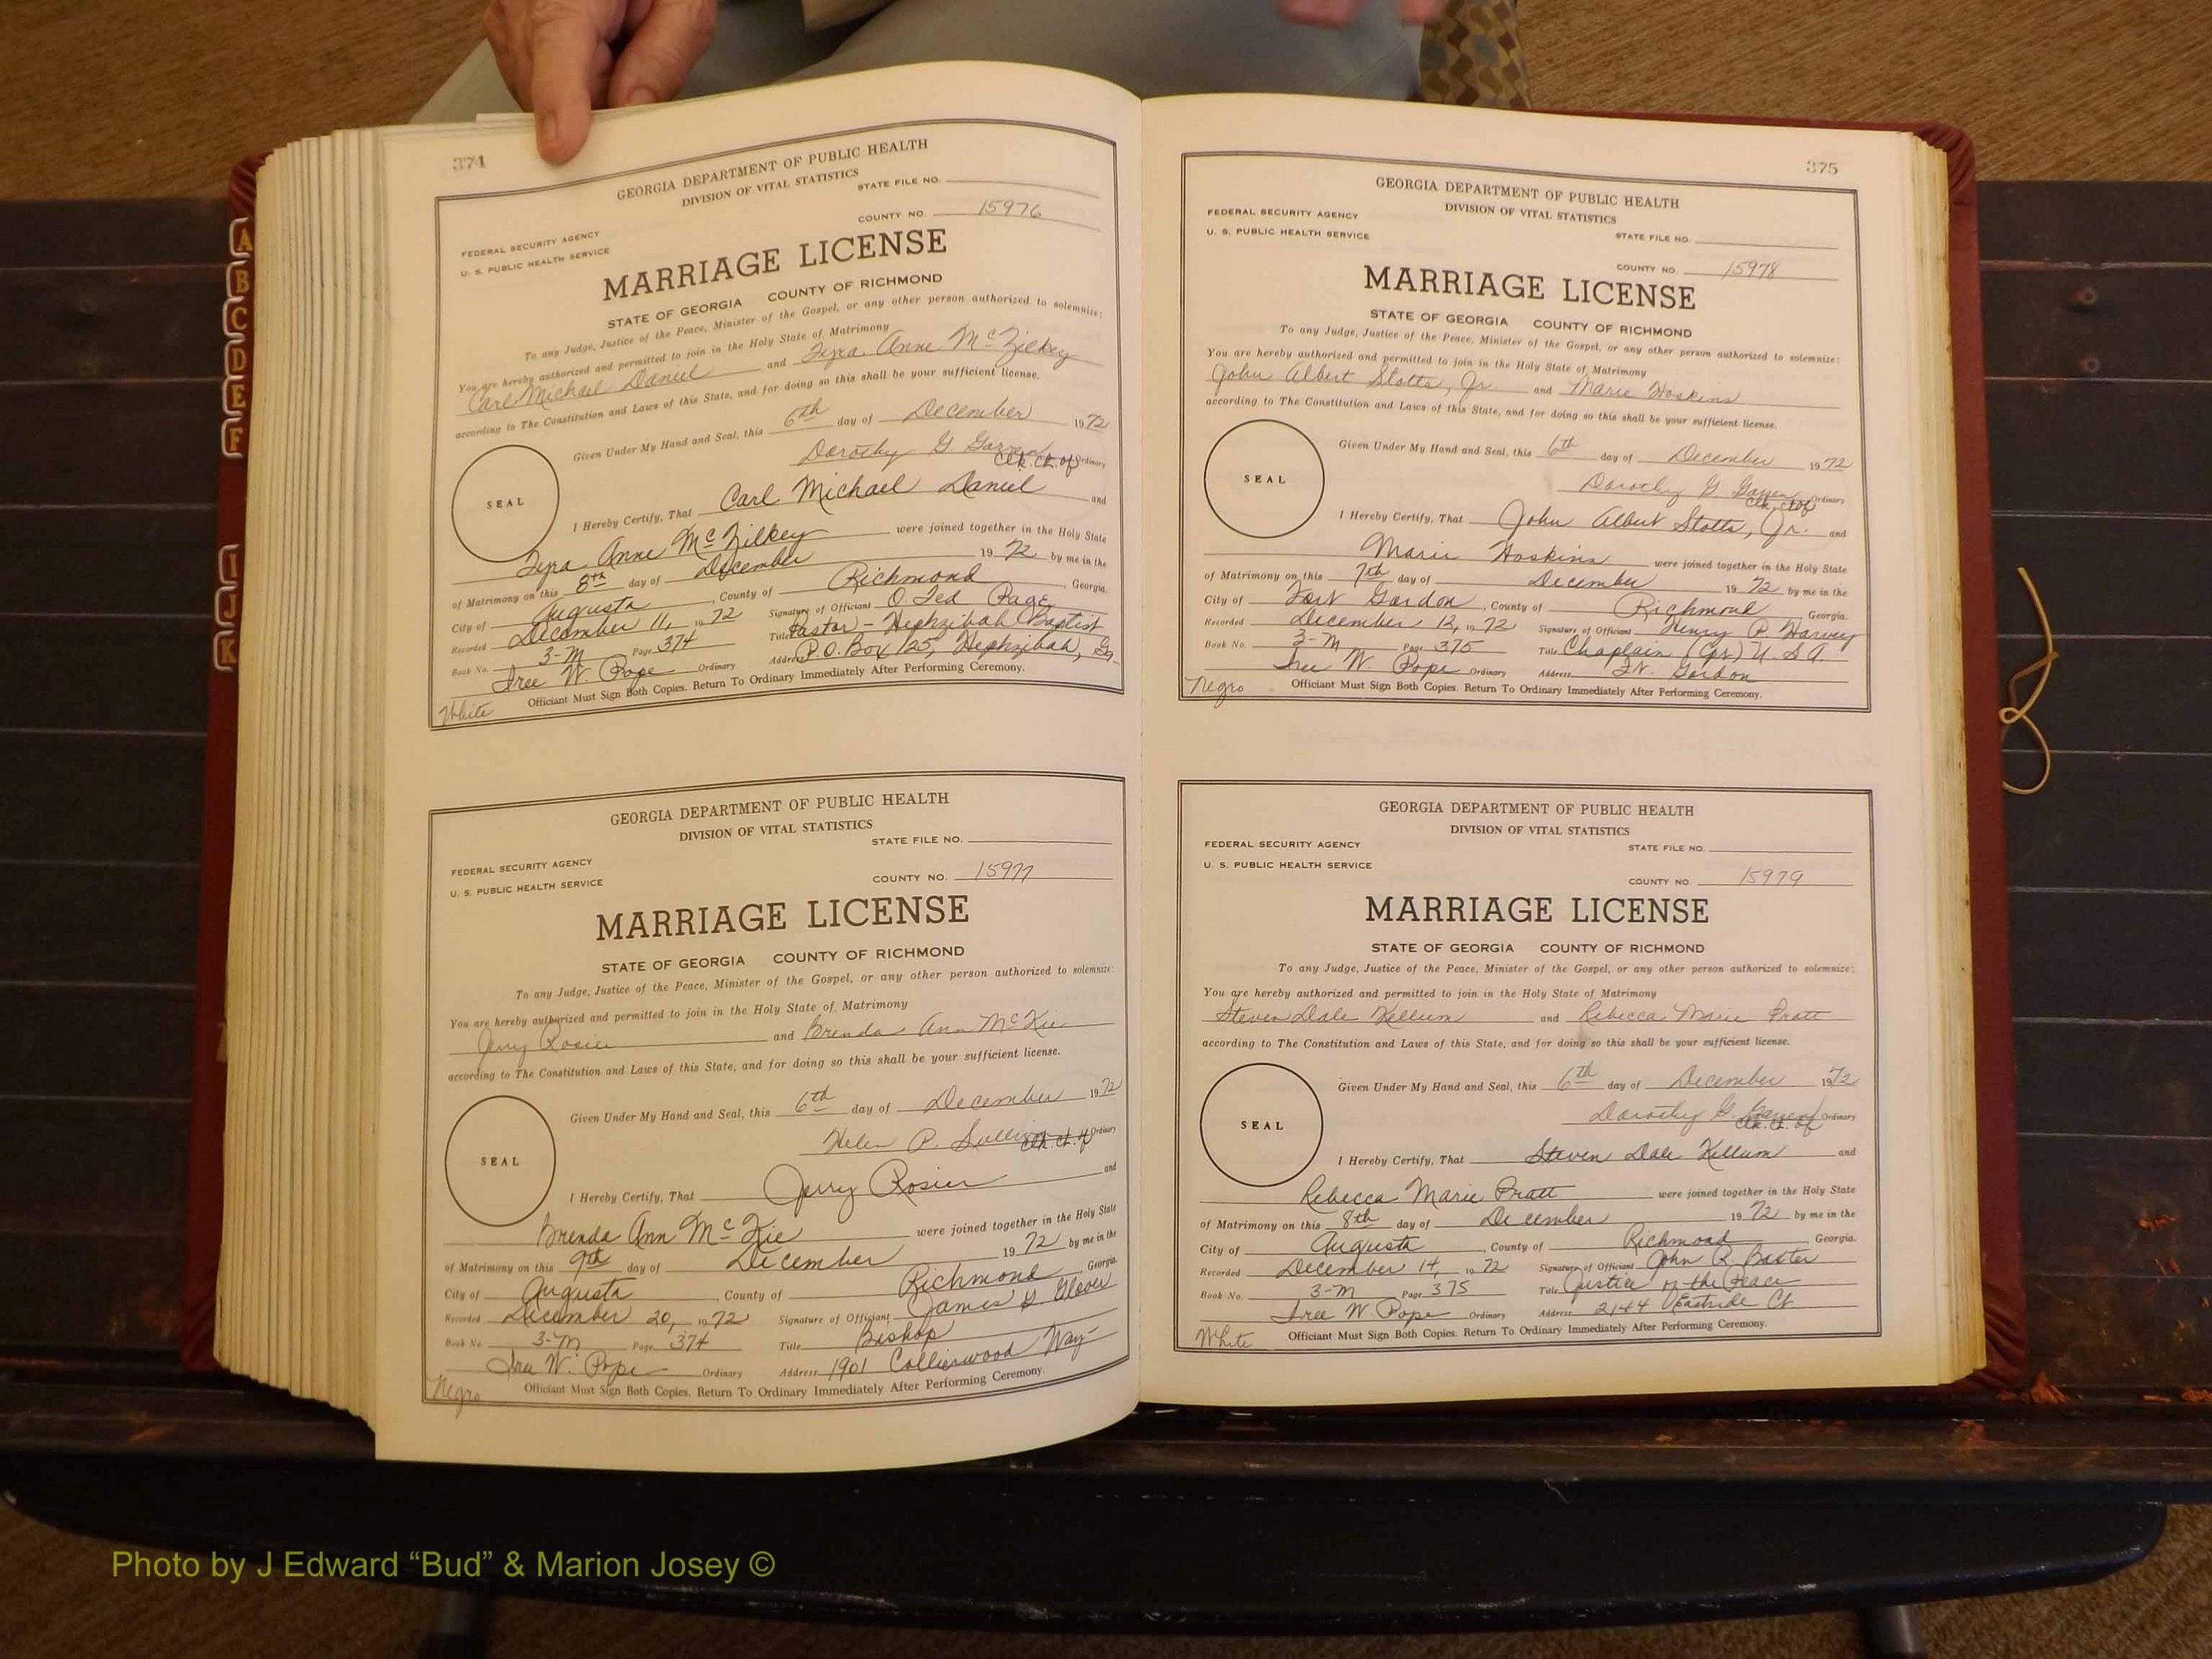 A
B
C
D
E
F
I
J
K
374
GEORGIA DEPARTMENT OF PUBLIC HEALTH
DIVISION OF VITAL STATISTICS
STATE FILE NO.
COUNTY NO. 15976
FEDERAL SECURITY AGENCY
U. S. PUBLIC HEALTH SERVICE
MARRIAGE LICENSE
STATE OF GEORGIA COUNTY OF RICHMOND
To any Judge, Justice of the Peace, Minister of the Gospel, or any other person authorized to solemnize:
You are hereby authorized and permitted to join in the Holy State of Matrimony
Carl Michael Daniel and Anne
according to The Constitution and Laws of this State, and for doing so this shall be your sufficient license.
Given Under My Hand and Seal, this 6th day of December 1972
Dorothy G.
Clk. Ct. of Ordinary
SEAL
I Hereby Certify, That Carl Michael Daniel and
Anne were joined together in the Holy State
of Matrimony on this 8th day of December 1972 by me in the
City of Augusta, County of Richmond Georgia.
Recorded December 11, 1972 Signature of Officiant O. Ted Page
Book No. 3-M Page 374 Title Pastor - Hephzibah Baptist
Iree W. Pope Ordinary Address P.O. Box 125, Hephzibah, Ga.
Officiant Must Sign Both Copies. Return To Ordinary Immediately After Performing Ceremony.
White
GEORGIA DEPARTMENT OF PUBLIC HEALTH
DIVISION OF VITAL STATISTICS
STATE FILE NO.
FEDERAL SECURITY AGENCY
U. S. PUBLIC HEALTH SERVICE
COUNTY NO. 15977
MARRIAGE LICENSE
STATE OF GEORGIA COUNTY OF RICHMOND
To any Judge, Justice of the Peace, Minister of the Gospel, or any other person authorized to solemnize:
You are hereby authorized and permitted to join in the Holy State of Matrimony
Jerry Rosier and Brenda Ann McKie
according to The Constitution and Laws of this State, and for doing so this shall be your sufficient license.
Given Under My Hand and Seal, this 6th day of December 1972
Helen P. Sullivan
Clk. Ct. of Ordinary
SEAL
I Hereby Certify, That Jerry Rosier and
Brenda Ann McKie were joined together in the Holy State
of Matrimony on this 9th day of December 1972 by me in the
City of Augusta, County of Richmond Georgia.
Recorded December 20, 1972 Signature of Officiant James G. Glover
Book No. 3-M Page 374 Title Bishop
Iree W. Pope Ordinary Address 1901 Collierwood Way
Officiant Must Sign Both Copies. Return To Ordinary Immediately After Performing Ceremony.
Negro
375
GEORGIA DEPARTMENT OF PUBLIC HEALTH
DIVISION OF VITAL STATISTICS
FEDERAL SECURITY AGENCY
U. S. PUBLIC HEALTH SERVICE
STATE FILE NO.
COUNTY NO. 15978
MARRIAGE LICENSE
STATE OF GEORGIA COUNTY OF RICHMOND
To any Judge, Justice of the Peace, Minister of the Gospel, or any other person authorized to solemnize:
You are hereby authorized and permitted to join in the Holy State of Matrimony
John Albert Stotts, Jr. and Marie Hoskins
according to The Constitution and Laws of this State, and for doing so this shall be your sufficient license.
Given Under My Hand and Seal, this 6th day of December 1972
Dorothy G.
Clk. Ct. of Ordinary
SEAL
I Hereby Certify, That John Albert Stotts, Jr. and
Marie Hoskins were joined together in the Holy State
of Matrimony on this 7th day of December 1972 by me in the
City of Fort Gordon, County of Richmond Georgia.
Recorded December 12, 1972 Signature of Officiant Henry P. Harvey
Book No. 3-M Page 375 Title Chaplain (Cpt) U.S.A.
Iree W. Pope Ordinary Address Ft. Gordon
Officiant Must Sign Both Copies. Return To Ordinary Immediately After Performing Ceremony.
Negro
GEORGIA DEPARTMENT OF PUBLIC HEALTH
DIVISION OF VITAL STATISTICS
FEDERAL SECURITY AGENCY
U. S. PUBLIC HEALTH SERVICE
STATE FILE NO.
COUNTY NO. 15979
MARRIAGE LICENSE
STATE OF GEORGIA COUNTY OF RICHMOND
To any Judge, Justice of the Peace, Minister of the Gospel, or any other person authorized to solemnize:
You are hereby authorized and permitted to join in the Holy State of Matrimony
Steven Dale Kellum and Rebecca Marie Pratt
according to The Constitution and Laws of this State, and for doing so this shall be your sufficient license.
Given Under My Hand and Seal, this 6th day of December 1972
Dorothy G.
Clk. Ct. of Ordinary
SEAL
I Hereby Certify, That Steven Dale Kellum and
Rebecca Marie Pratt were joined together in the Holy State
of Matrimony on this 8th day of December 1972 by me in the
City of Augusta, County of Richmond Georgia.
Recorded December 14, 1972 Signature of Officiant John R. Baxter
Book No. 3-M Page 375 Title Justice of the Peace
Iree W. Pope Ordinary Address 2144 Eastside Ct
Officiant Must Sign Both Copies. Return To Ordinary Immediately After Performing Ceremony.
White
Photo by J Edward “Bud” & Marion Josey ©